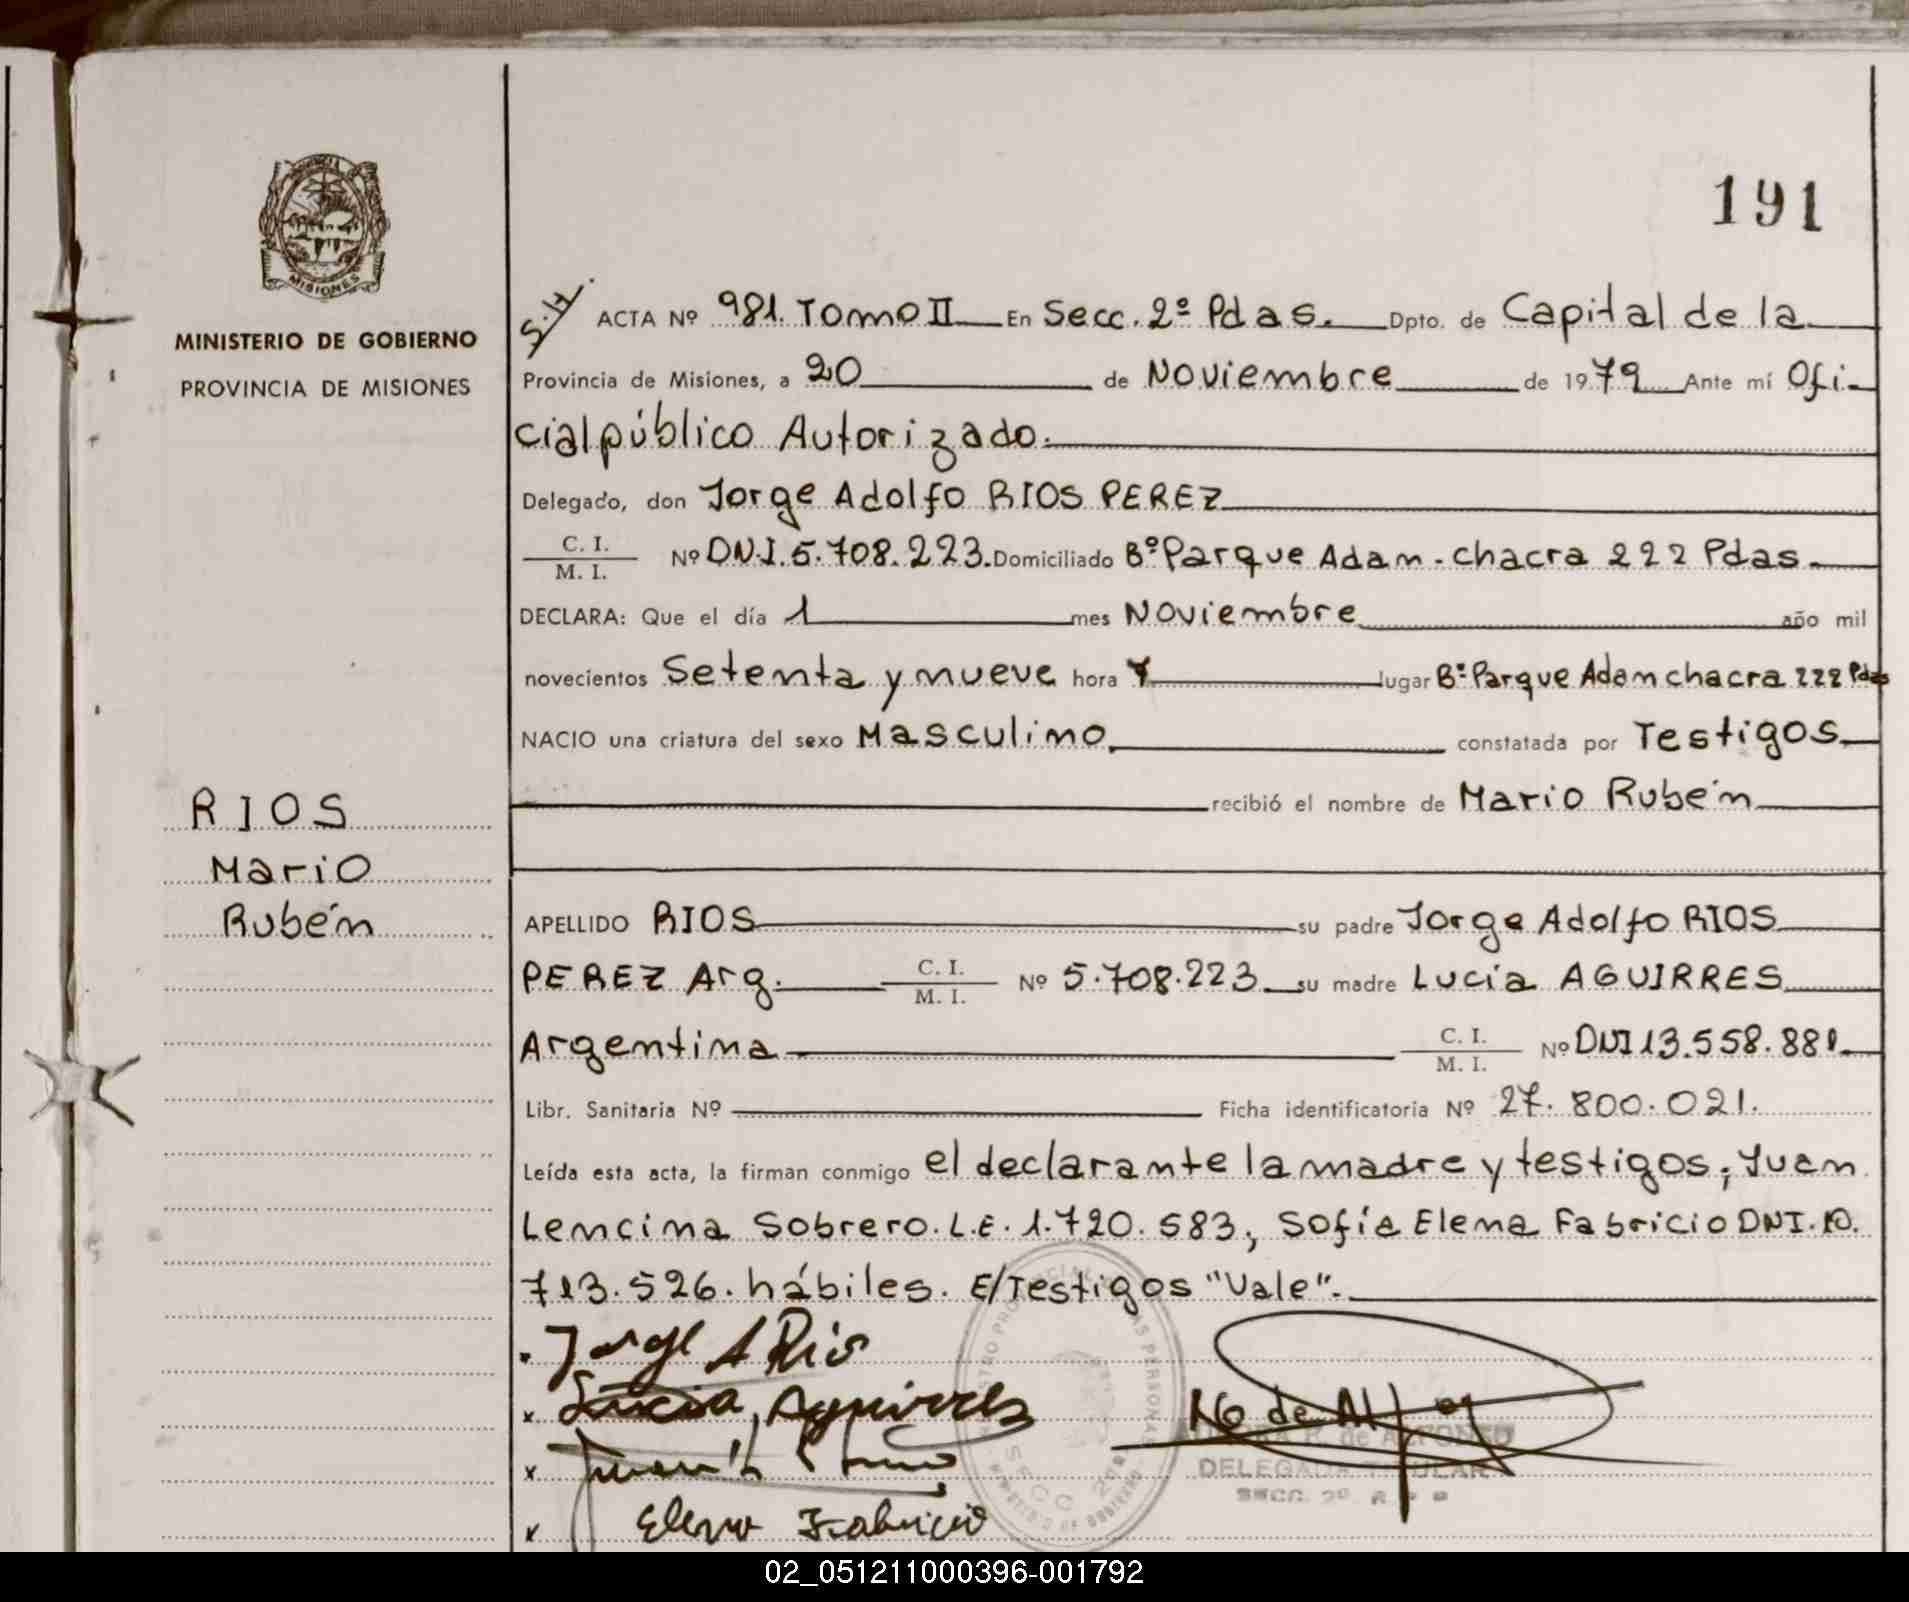 191
MISIONES
MINISTERIO DE GOBIERNO
PROVINCIA DE MISIONES
RIOS
Mario
Rubén
S.H.
ACTA Nº 981. Tomo II En Secc. 2º Pdas. Dpto. de Capital de la
Provincia de Misiones, a 20 de Noviembre de 1979 Ante mí Ofi-
cial público Autorizado.
Delegado, don Jorge Adolfo RIOS PEREZ
C. I.
M. I. Nº DN.I. 5.708.223. Domiciliado Bº Parque Adam - chacra 222 Pdas.
DECLARA: Que el día 1 mes Noviembre año mil
novecientos Setenta y nueve hora lugar Bº Parque Adam chacra 222 Pdas
NACIO una criatura del sexo Masculino. constatada por Testigos
recibió el nombre de Mario Rubén
APELLIDO RIOS su padre Jorge Adolfo RIOS
PEREZ Arg. C. I. M. I. Nº 5.708.223 su madre Lucía AGUIRRES
Argentina C. I. M. I. Nº DNI 13.558.881.
Libr. Sanitaria Nº Ficha identificatoria Nº 27.800.021.
Leída esta acta, la firman conmigo el declarante la madre y testigos; Juan
Lencina Sobrero. L.E. 1.720.583, Sofía Elena Fabricio DNI. 10.
713.526. hábiles. E/Testigos "Vale".
Jorge A Rios
Lucia Aguirres
Elena Fabricio
de ALFONSO
DELEGADA TITULAR
SECC. 2º
02_051211000396-001792